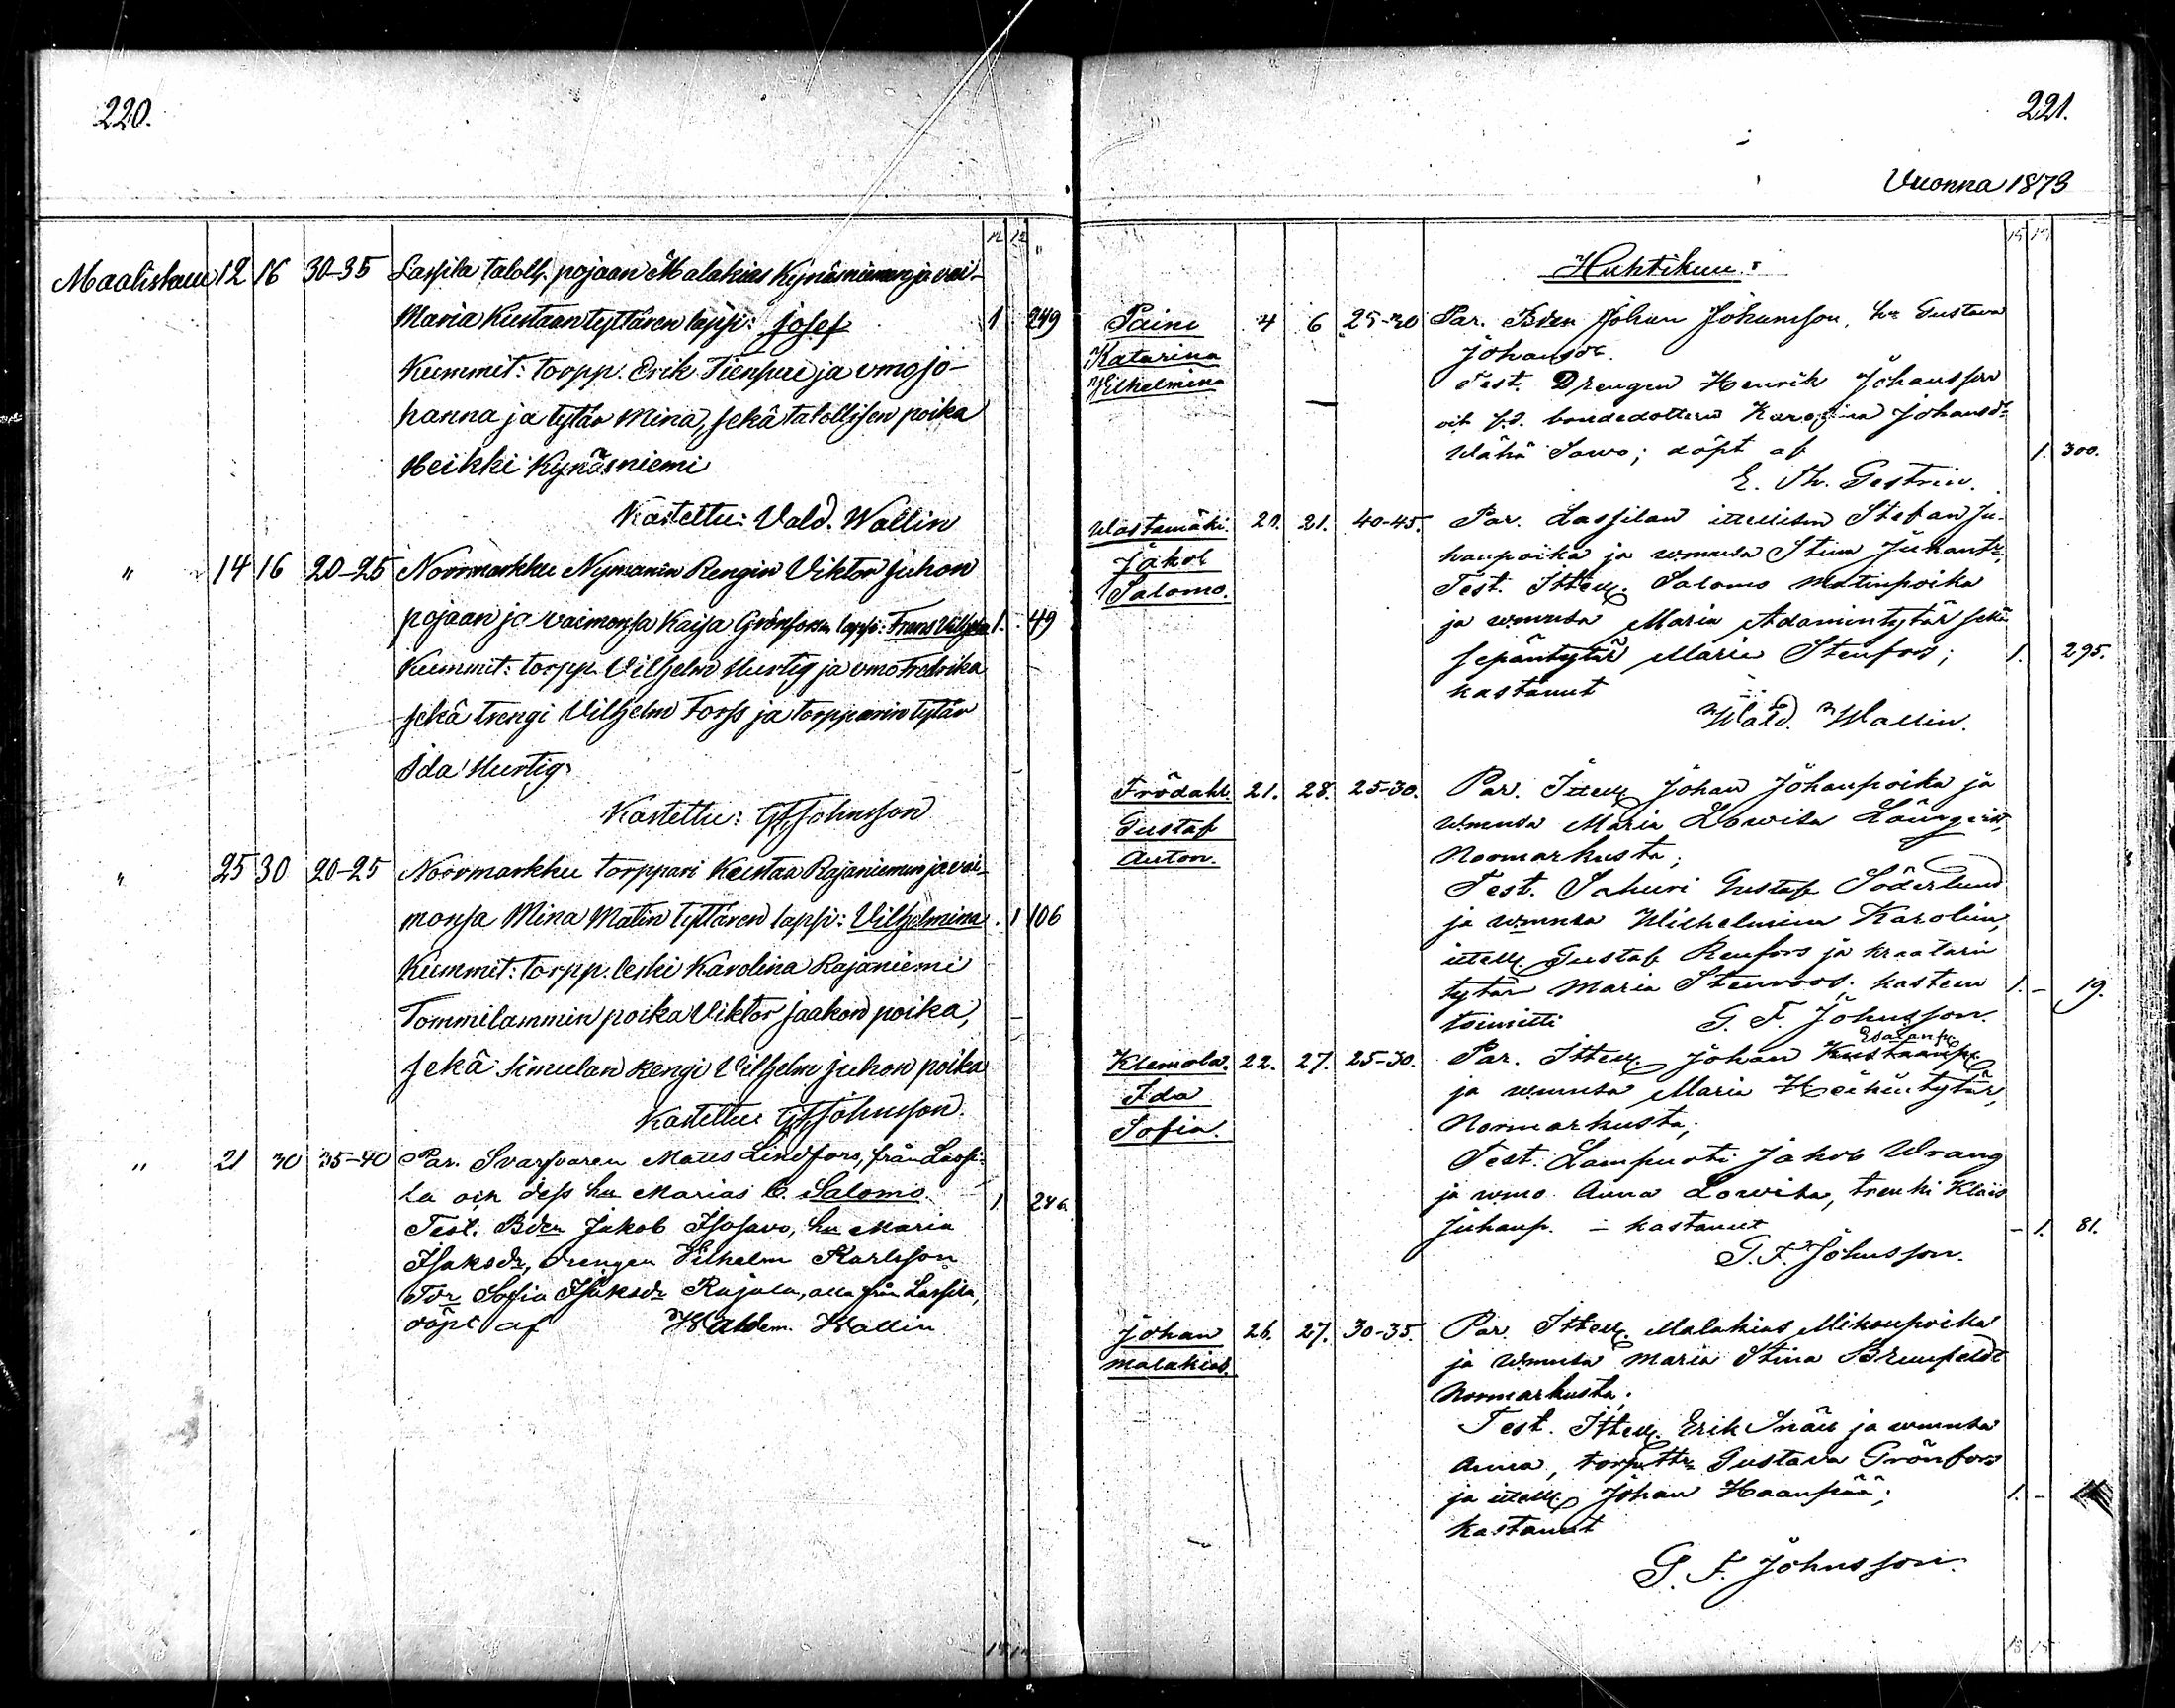 220.
12 12
Maaliskuu 12 16 30-35 Lassila talolls. pojaan Malakias Kynäsniemen ja vai-
Maria Kustaantyttären lapsi: Josef 1 249
Kummit: torpp. Erik Tienpuu ja vmo Jo-
hanna ja tytär Mina, sekä talollisen poika
Heikki Kynäsniemi
Kastettu: Vald. Wallin
" 14 16 20-25 Norrmarkku Nymanin Rengin Viktor Juhon
pojaan ja vaimonsa Kaisa Grönforsin lapsi: Frans Vilhelm 1. 49
Kummit: torpp. Vilhelm Hurtig ja vmo Fredrika
sekä trengi Vilhelm Forss ja torpparin tytär
Ida Hurtig
Kastettu: G F Johnsson
" 25 30 20-25 Norrmarkku torppari Kustaa Rajaniemen ja vai-
monsa Mina Matin tyttären lapsi: Vilhelmina . 1 106
Kummit: torpp. leski Karolina Rajaniemi
Tommilammin poika Viktor Jaakon poika,
sekä Simulan Rengi Vilhelm Juhon poika
Kastettu: G F Johnsson.
" 21 30 35-40 Par. Svarfvaren Matts Lindfors, från Lassi-
la och dess hu Marias b. Salomo. 1. 246
Test. Bden Jakob Isosavo, hu Maria
Isaksdr, drengen Vilhelm Karlsson
Tdr Sofia Isaksdr Rajala, alla från Lassila,
döpt af Waldem. Wallin
221.
Vuonna 1873
Huhtikuu:
Paine 4 6 25-30 Par. Bden Johan Johansson, hu Gustava
Katarina Johansdr.
Wilhelmina Test. Drengen Henrik Johansson
och f.d. bondedottern Karolina Johansdr
Wähä Sawo; döpt af 1. 300.
E. Th. Gestrin.
Wastamäki 20. 21. 40-45. Par. Lassilan ittellisen Stefan Ju-
Jakob hanpoika ja wmnsa Stina Juhantr,
Salomo. Test. Ittell. Salomo Matinpoika
ja wmnsa Maria Adamintytär sekä
sepäntytär Maria Stenfors; 1. 295.
kastanut
Wald. Wallin.
Frödahl. 21. 28. 25-30. Par. Ittell Johan Johanpoika ja
Gustaf wmnsa Maria Lowisa
Anton. Normarkusta;
Test. Sahuri Gustaf Söderlund
ja wmnsa Wilhelmina Karolin,
ittell. Gustaf Renfors ja kraatarin
tytär Maria Stenroos; kasteen 1. - 19.
toimitti G. F. Johnsson.
Esaianp
Klemola. 22. 27. 25-30. Par. Ittell. Johan Kustaanp.
Ida ja wmnsa Maria Heikintytär,
Sofia. Normarkusta;
Test. Lampuoti Jakob Wrang
ja wmo Anna Lowisa, trenki Kläis
Juhanp. - kastanut - 1. 81.
G. F. Johnsson.
Johan 26. 27. 30-35. Par. Ittell. Malakias Mikonpoika
Malakias. ja wmnsa Maria Stina Brunfeldt
Normarkusta;
Test. Ittell. Erik ja wmnsa
Anna, torp. ttr Gustava Grönfors
ja ittell. Johan Haanpää; 1. -
kastanut
G. F. Johnsson.